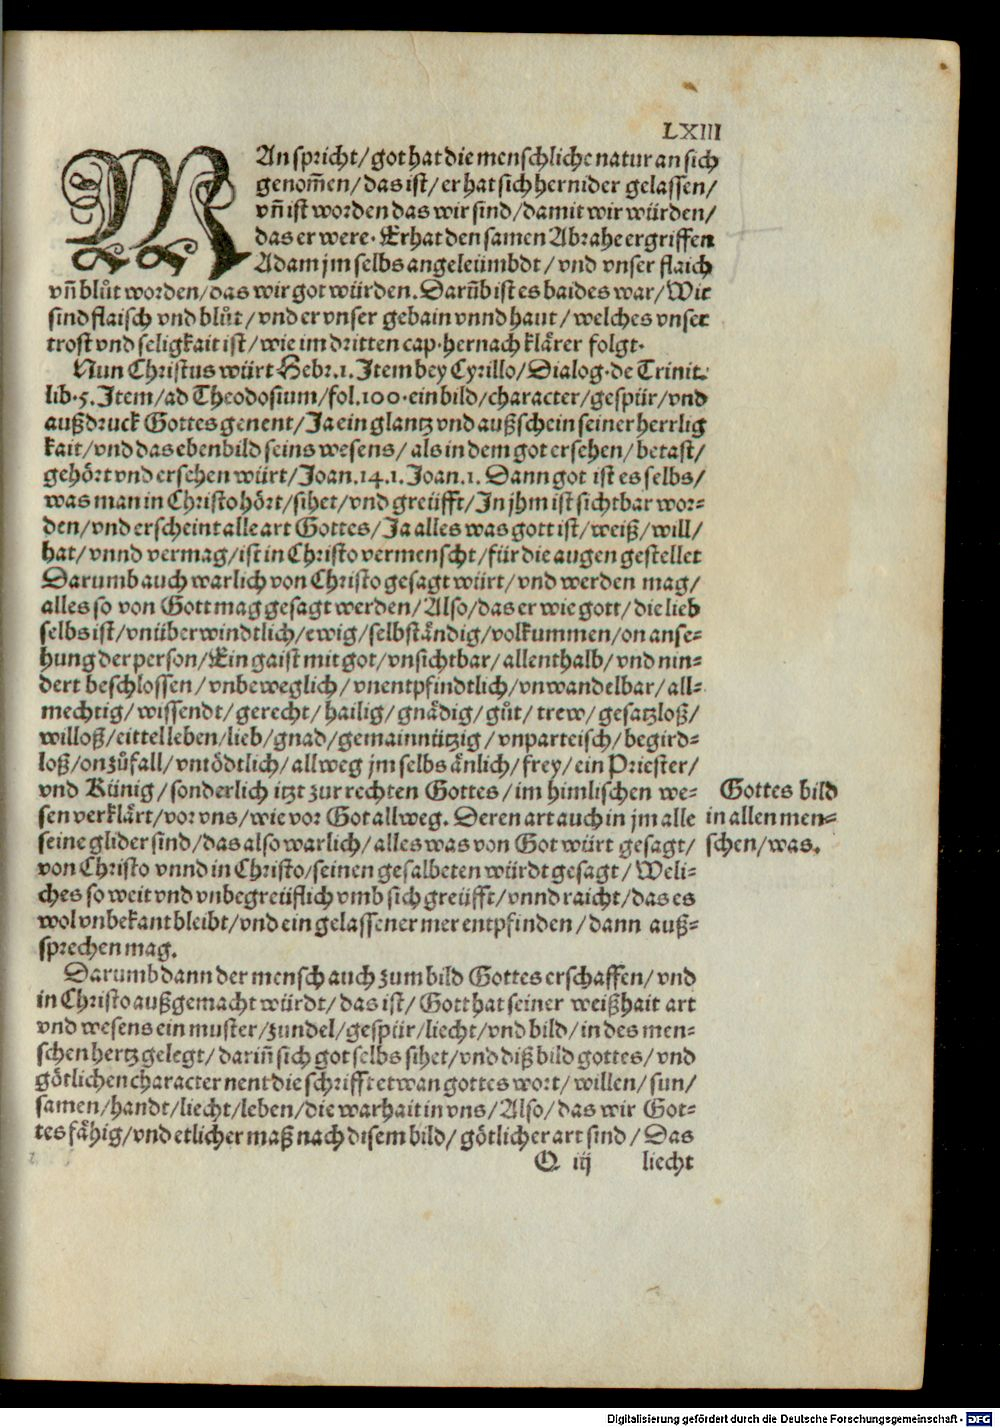 LXIII
MAn spricht/ got hat die menschliche natur an sich
genom̄en/ das ist/ er hat sich hernider gelassen/
vn̄ ist worden das wir sind/ damit wir würden/
das er were. Er hat den samen Abrahe ergriffen
Adam jm selbs angeleümbdt/ vnd vnser flaich
vn̄ blůt worden/ das wir got würden. Darūb ist es baides war/ Wir
sind flaisch vnd blůt/ vnd er vnser gebain vnnd haut/ welches vnser
trost vnd seligkait ist/ wie im dritten cap. hernach klårer folgt.
Nun Christus würt Hebr. 1. Item bey Cyrillo/ Dialog. de Trinit.
lib. 5. Item/ ad Theodosium/ fol. 100. ein bild/ character/ gespür/ vnd
außdruck Gottes genent/ Ja ein glantz vnd außschein seiner herrlig
kait/ vnd das ebenbild seins wesens/ als in dem got ersehen/ betast/
gehört vnd ersehen würt/ Joan. 14. 1. Joan. 1. Dann got ist es selbs/
was man in Christo hört/ sihet/ vnd greüfft/ In jhm ist sichtbar wor-
den/ vnd erscheint alle art Gottes/ Ja alles was gott ist/ weiß/ will/
hat/ vnnd vermag/ ist in Christo vermenscht/ für die augen gestellet
Darumb auch warlich von Christo gesagt würt/ vnd werden mag/
alles so von Gott mag gesagt werden/ Also/ das er wie gott/ die lieb
selbs ist/ vnüberwindtlich/ ewig/ selbståndig/ volkummen/ on anse-
hung der person/ Ein gaist mit got/ vnsichtbar/ allenthalb/ vnd nin-
dert beschlossen/ vnbeweglich/ vnentpfindtlich/ vnwandelbar/ all-
mechtig/ wissendt/ gerecht/ hailig/ gnådig/ gůt/ trew/ gesatzloß/
willoß/ eittel leben/ lieb/ gnad/ gemainnützig/ vnparteisch/ begird-
loß/ on zůfall/ vntödtlich/ allweg jm selbs ånlich/ frey/ ein Priester/
vnd Künig/ sonderlich itzt zur rechten Gottes/ im himlischen we-
sen verklårt/ vor vns/ wie vor Got allweg. Deren art auch in jm alle
seine glider sind/ das also warlich/ alles was von Got würt gesagt/
von Christo vnnd in Christo/ seinen gesalbeten würdt gesagt/ Weli-
ches so weit vnd vnbegreüflich vmb sich greüfft/ vnnd raicht/ das es
wol vnbekant bleibt/ vnd ein gelassener mer entpfinden/ dann auß-
sprechen mag.
Gottes bild
in allen men-
schen/ was.
Darumb dann der mensch auch zum bild Gottes erschaffen/ vnd
in Christo außgemacht würdt/ das ist/ Gott hat seiner weißhait art
vnd wesens ein muster/ zundel/ gespür/ liecht/ vnd bild/ in des men-
schen hertz gelegt/ darin̄ sich got selbs sihet/ vnd diß bild gottes/ vnd
götlichen character nent die schrifft etwan gottes wort/ willen/ sun/
samen/ handt/ liecht/ leben/ die warhait in vns/ Also/ das wir Got-
tes fåhig/ vnd etlicher maß nach disem bild/ götlicher art sind/ Das
Q iij liecht
Digitalisierung gefördert durch die Deutsche Forschungsgemeinschaft - DFG